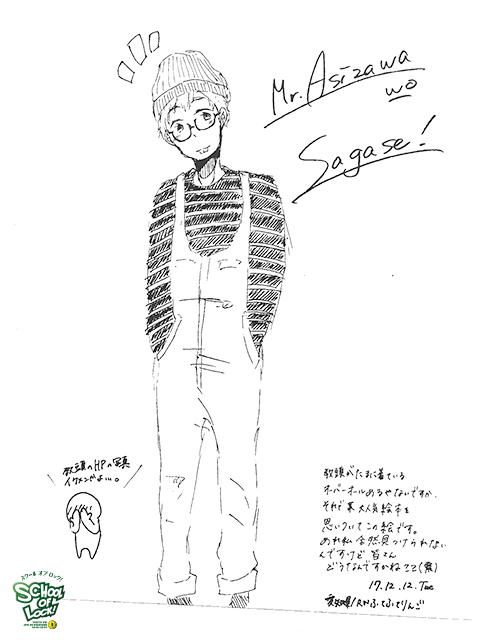 Mr. Asizawa
wo
Sagase!
教頭のHPの写真
イケメンだよ…。
教頭がたまに着ている
オーバーオールあるやないですか、
それで某大人気絵本を
思いついてこの絵です。
あれ私全然見つけられない
んですけど皆さん
どうなんですかねここ(笑)
17.12.12.Tue
愛知県/RNふてふてりんご
スクール オブ ロック!
SCHOOL
OF
LOCK!